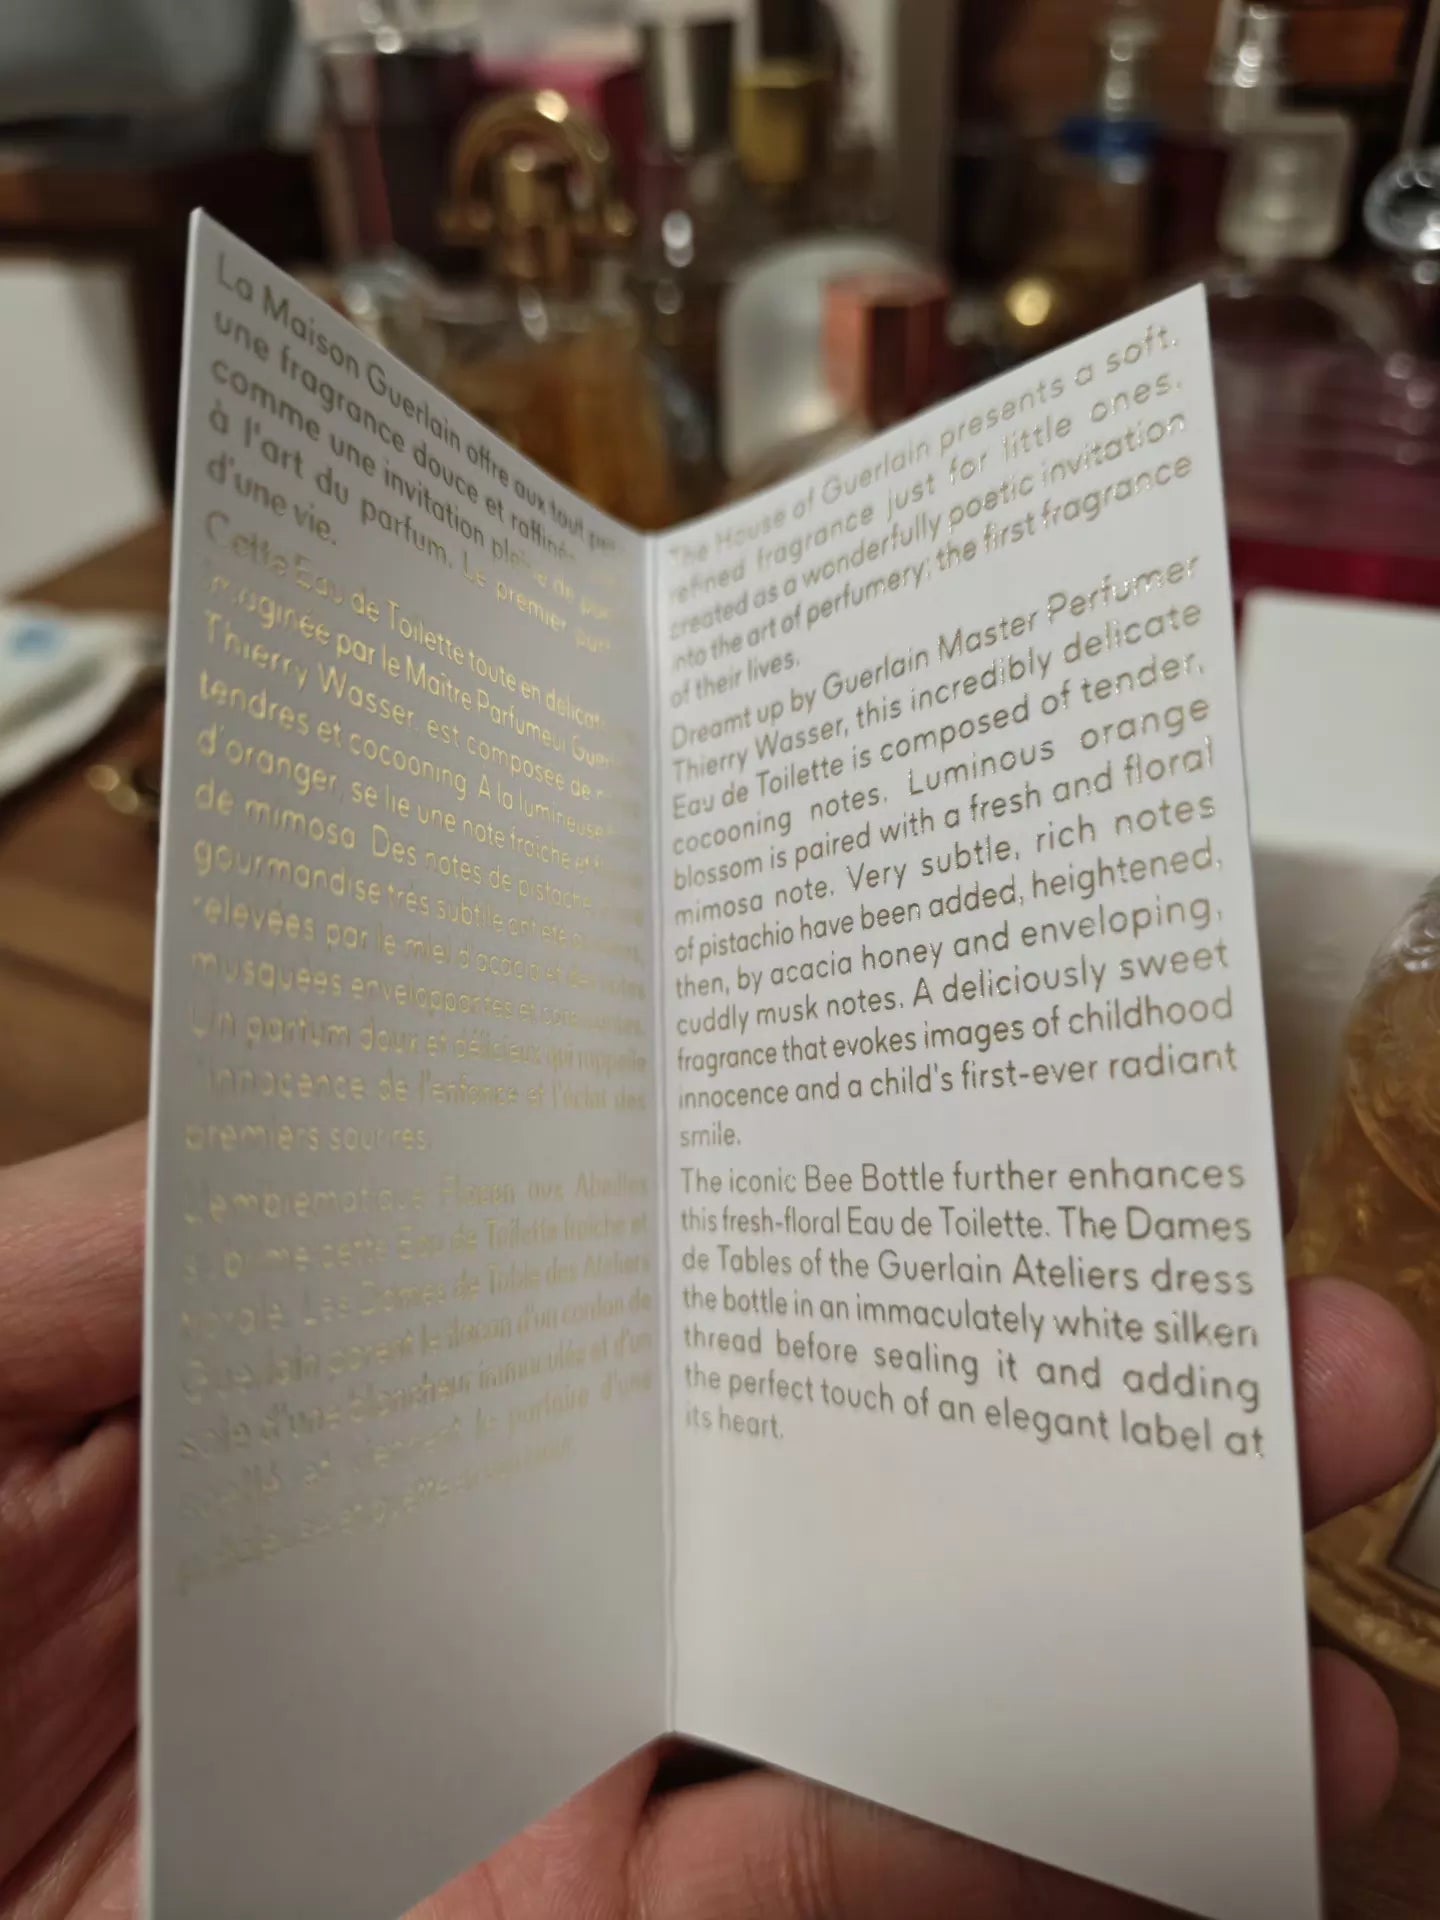 La Maison Guerlain offre aux tout
une fragrance douce et raffiné
comme une invitation pleine de
à l'art du parfum. Le premier
d'une vie.
Cette Eau de Toilette toute en
imaginée par le Maître Parfumeur
Thierry Wasser, est composée de
tendres et cocooning. A la lumineuse
d'oranger, se lie une note fraîche et
de mimosa. Des notes de pistache,
gourmandise très subtile ont été
relevées par le miel d'acacia et des notes
musquées enveloppantes et
Un parfum doux et délicieux qui rappelle
l'innocence de l'enfance et l'éclat des
premiers sourires.
L'emblématique Flacon aux Abeilles
sublime cette Eau de Toilette fraîche et
florale. Les Dames de Table des Ateliers
Guerlain parent le flacon d'un cordon de
soie d'une blancheur immaculée et d'un
et viennent le parfaire d'une
The House of Guerlain presents a soft,
refined fragrance just for little ones,
created as a wonderfully poetic invitation
into the art of perfumery; the first fragrance
of their lives.
Dreamt up by Guerlain Master Perfumer
Thierry Wasser, this incredibly delicate
Eau de Toilette is composed of tender,
cocooning notes. Luminous orange
blossom is paired with a fresh and floral
mimosa note. Very subtle, rich notes
of pistachio have been added, heightened,
then, by acacia honey and enveloping,
cuddly musk notes. A deliciously sweet
fragrance that evokes images of childhood
innocence and a child's first-ever radiant
smile.
The iconic Bee Bottle further enhances
this fresh-floral Eau de Toilette. The Dames
de Tables of the Guerlain Ateliers dress
the bottle in an immaculately white silken
thread before sealing it and adding
the perfect touch of an elegant label at
its heart.